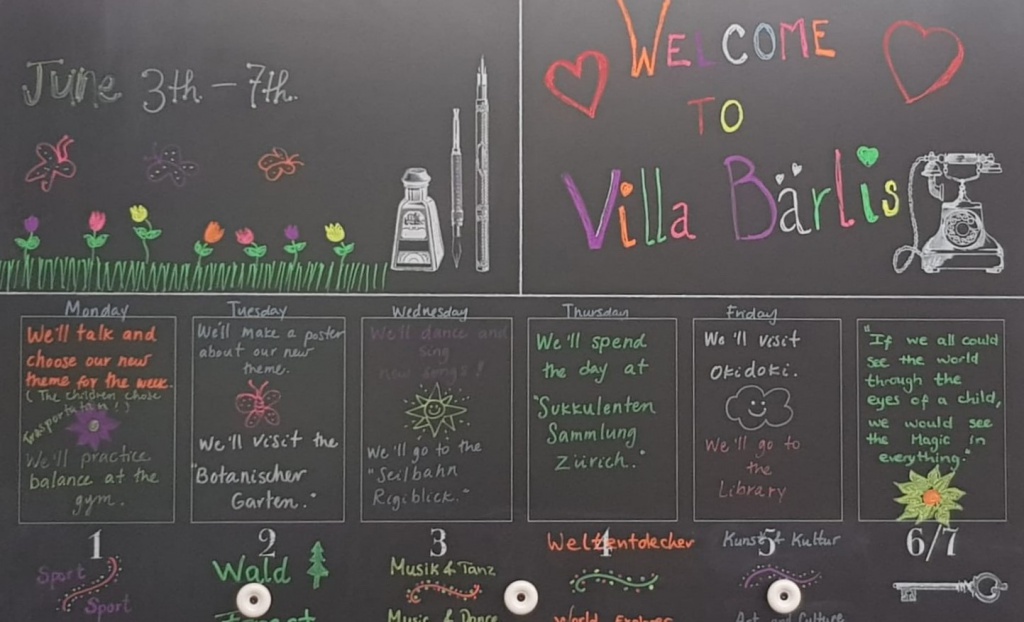 June 3th – 7th.
WELCOME
TO
Villa Bärlis
Monday
We'll talk and
choose our new
theme for the week.
(The children chose
Trasportation!)
We'll practice
balance at the
gym.
1
Sport
Sport
Tuesday
We'll make a poster
about our new
theme.
We'll visit the
"Botanischer
Garten."
2
Wald
Forest
Wednesday
We'll dance and
sing
new songs!
We'll go to the
"Seilbahn
Rigiblick."
3
Musik & Tanz
Music & Dance
Thursday
We'll spend
the day at
"Sukkulenten
Sammlung
Zürich."
4
Weltentdecker
World Explorer
Friday
We'll visit
Okidoki.
We'll go to
the
Library
5
Kunst & Kultur
Art and Culture
"If we all could
see the world
through the
eyes of a child,
we would see
the Magic in
everything."
6/7